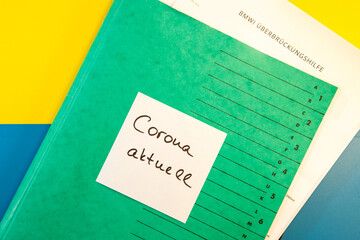 BMWI ÜBERBRÜCKUNGSHILFE
Corona
aktuell
1
2
3
4
5
6